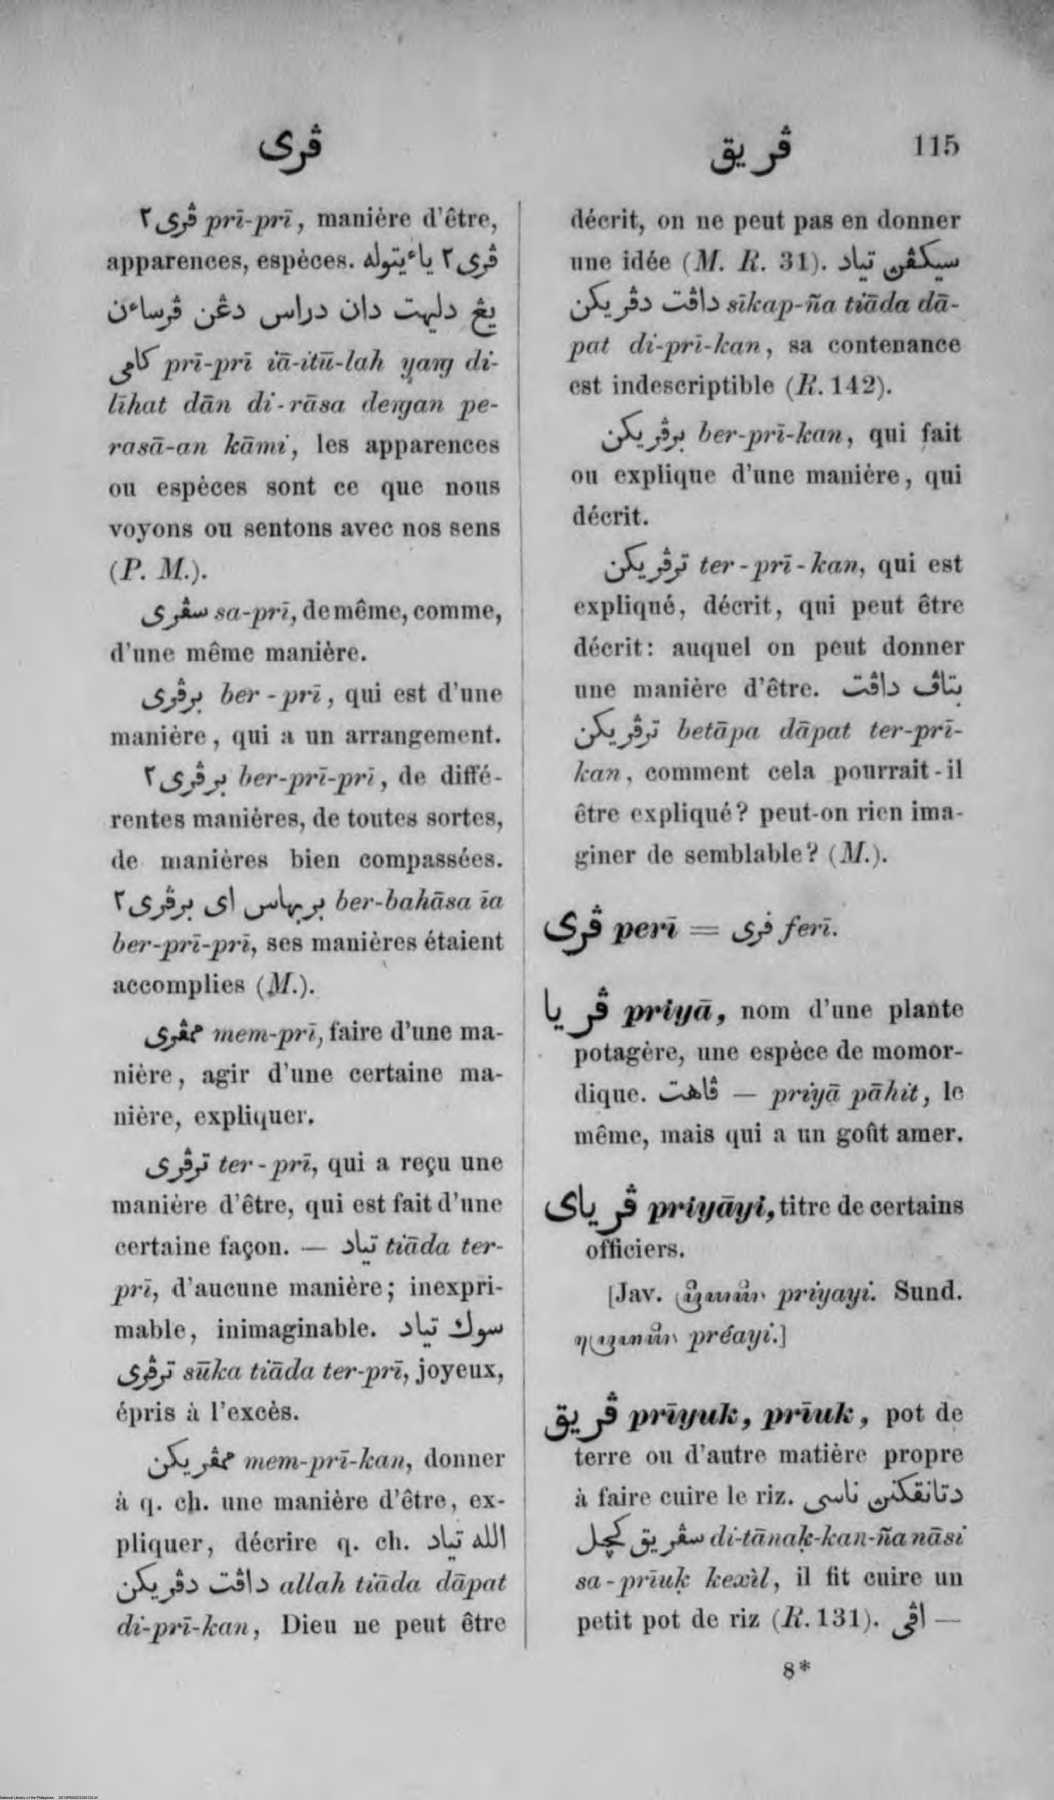 ڤرى
ڤريق
115
ڤرى٢ prī-prī, manière d'être,
apparences, espèces. ڤرى٢ ياءيتوله
يڠ دليهت دان دراس دڠن ڤرساءن
كامي prī-prī iā-itū-lah yaṅg di-
līhat dān di-rāsa deṅgan pe-
rasā-an kāmi, les apparences
ou espèces sont ce que nous
voyons ou sentons avec nos sens
(P. M.).
سڤرى sa-prī, de même, comme,
d'une même manière.
برڤرى ber-prī, qui est d'une
manière, qui a un arrangement.
برڤرى٢ ber-prī-prī, de diffé-
rentes manières, de toutes sortes,
de manières bien compassées.
بربهاس اى برڤرى٢ ber-bahāsa īa
ber-prī-prī, ses manières étaient
accomplies (M.).
ممڤرى mem-prī, faire d'une ma-
nière, agir d'une certaine ma-
nière, expliquer.
ترڤرى ter-prī, qui a reçu une
manière d'être, qui est fait d'une
certaine façon. — تياد tiāda ter-
prī, d'aucune manière; inexpri-
mable, inimaginable. سوك تياد
ترڤرى sūka tiāda ter-prī, joyeux,
épris à l'excès.
ممڤريكن mem-prī-kan, donner
à q. ch. une manière d'être, ex-
pliquer, décrire q. ch. الله تياد
داڤت دڤريكن allah tiāda dāpat
di-prī-kan, Dieu ne peut être
décrit, on ne peut pas en donner
une idée (M. R. 31). سيكڤن تياد
داڤت دڤريكن sīkap-ña tiāda dā-
pat di-prī-kan, sa contenance
est indescriptible (R. 142).
برڤريكن ber-prī-kan, qui fait
ou explique d'une manière, qui
décrit.
ترڤريكن ter-prī-kan, qui est
expliqué, décrit, qui peut être
décrit: auquel on peut donner
une manière d'être. بتاڤ داڤت
ترڤريكن betāpa dāpat ter-prī-
kan, comment cela pourrait-il
être expliqué? peut-on rien ima-
giner de semblable? (M.).
ڤرى perī = فرى ferī.
ڤريا priyā, nom d'une plante
potagère, une espèce de momor-
dique. ڤاهت — priyā pāhit, le
même, mais qui a un goût amer.
ڤرياى priyāyi, titre de certains
officiers.
[Jav. priyayi. Sund.
préayi.]
ڤريق prīyuk, prīuk, pot de
terre ou d'autre matière propre
à faire cuire le riz. دتانقكنن ناسى
سڤريق كچل di-tānaḳ-kan-ña nāsi
sa-prīuḳ kexìl, il fit cuire un
petit pot de riz (R. 131). اڤى —
8*